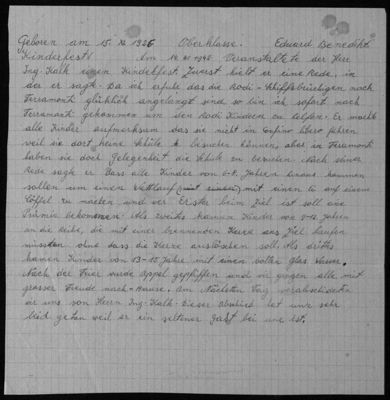 Geboren am 15 XI 1926 Oberklasse. Eduard Benedikt
Kinderfest Am 14. XI 1942 Veranstaltete der Herr
Ing. Kalk einen Kinderfest. Zuerst hielt er eine Rede, in
der er sagt. Da ich erfuhr das die Rodi-Schiffsbrüchigen nach
Ferramonti glücklich angelangt sind so bin ich sofort nach
Ferramonti gekommen um den Rodi Kindern zu helfen. Er macht
alle Kinder aufmerksam das sie nicht in Confino libero fahren
weil sie dort keine Schule besuchen können, aber in Ferramonti
haben sie doch Gelegenheit die Schule zu besuchen. Nach seiner
Rede sagt er Dass alle Kinder von 6-9. Jahren kommen
sollen um einen Wettlauf mit einen Ei auf einem
Löffel zu machen und wer Erster beim Ziel ist soll eine
Prämie bekommen. Als zweites kamen Kinder von 9-12. Jahren
an die Reihe, die mit einer brennenden Kerze ans Ziel laufen
mussten ohne dass die Kerze auslöschen soll. Als drittes
kamen Kinder von 13-15 Jahre mit einen vollen Glas Wasser.
Nach der Feier wurde Appel gepfiffen und wir gingen alle mit
grosser Freude nach-Hause. Am Nächsten Tag verabschiedeten
wir uns von Herrn Ing. Kalk. Dieser Abschied hat uns sehr
leid getan weil er ein seltener Gast bei uns ist.